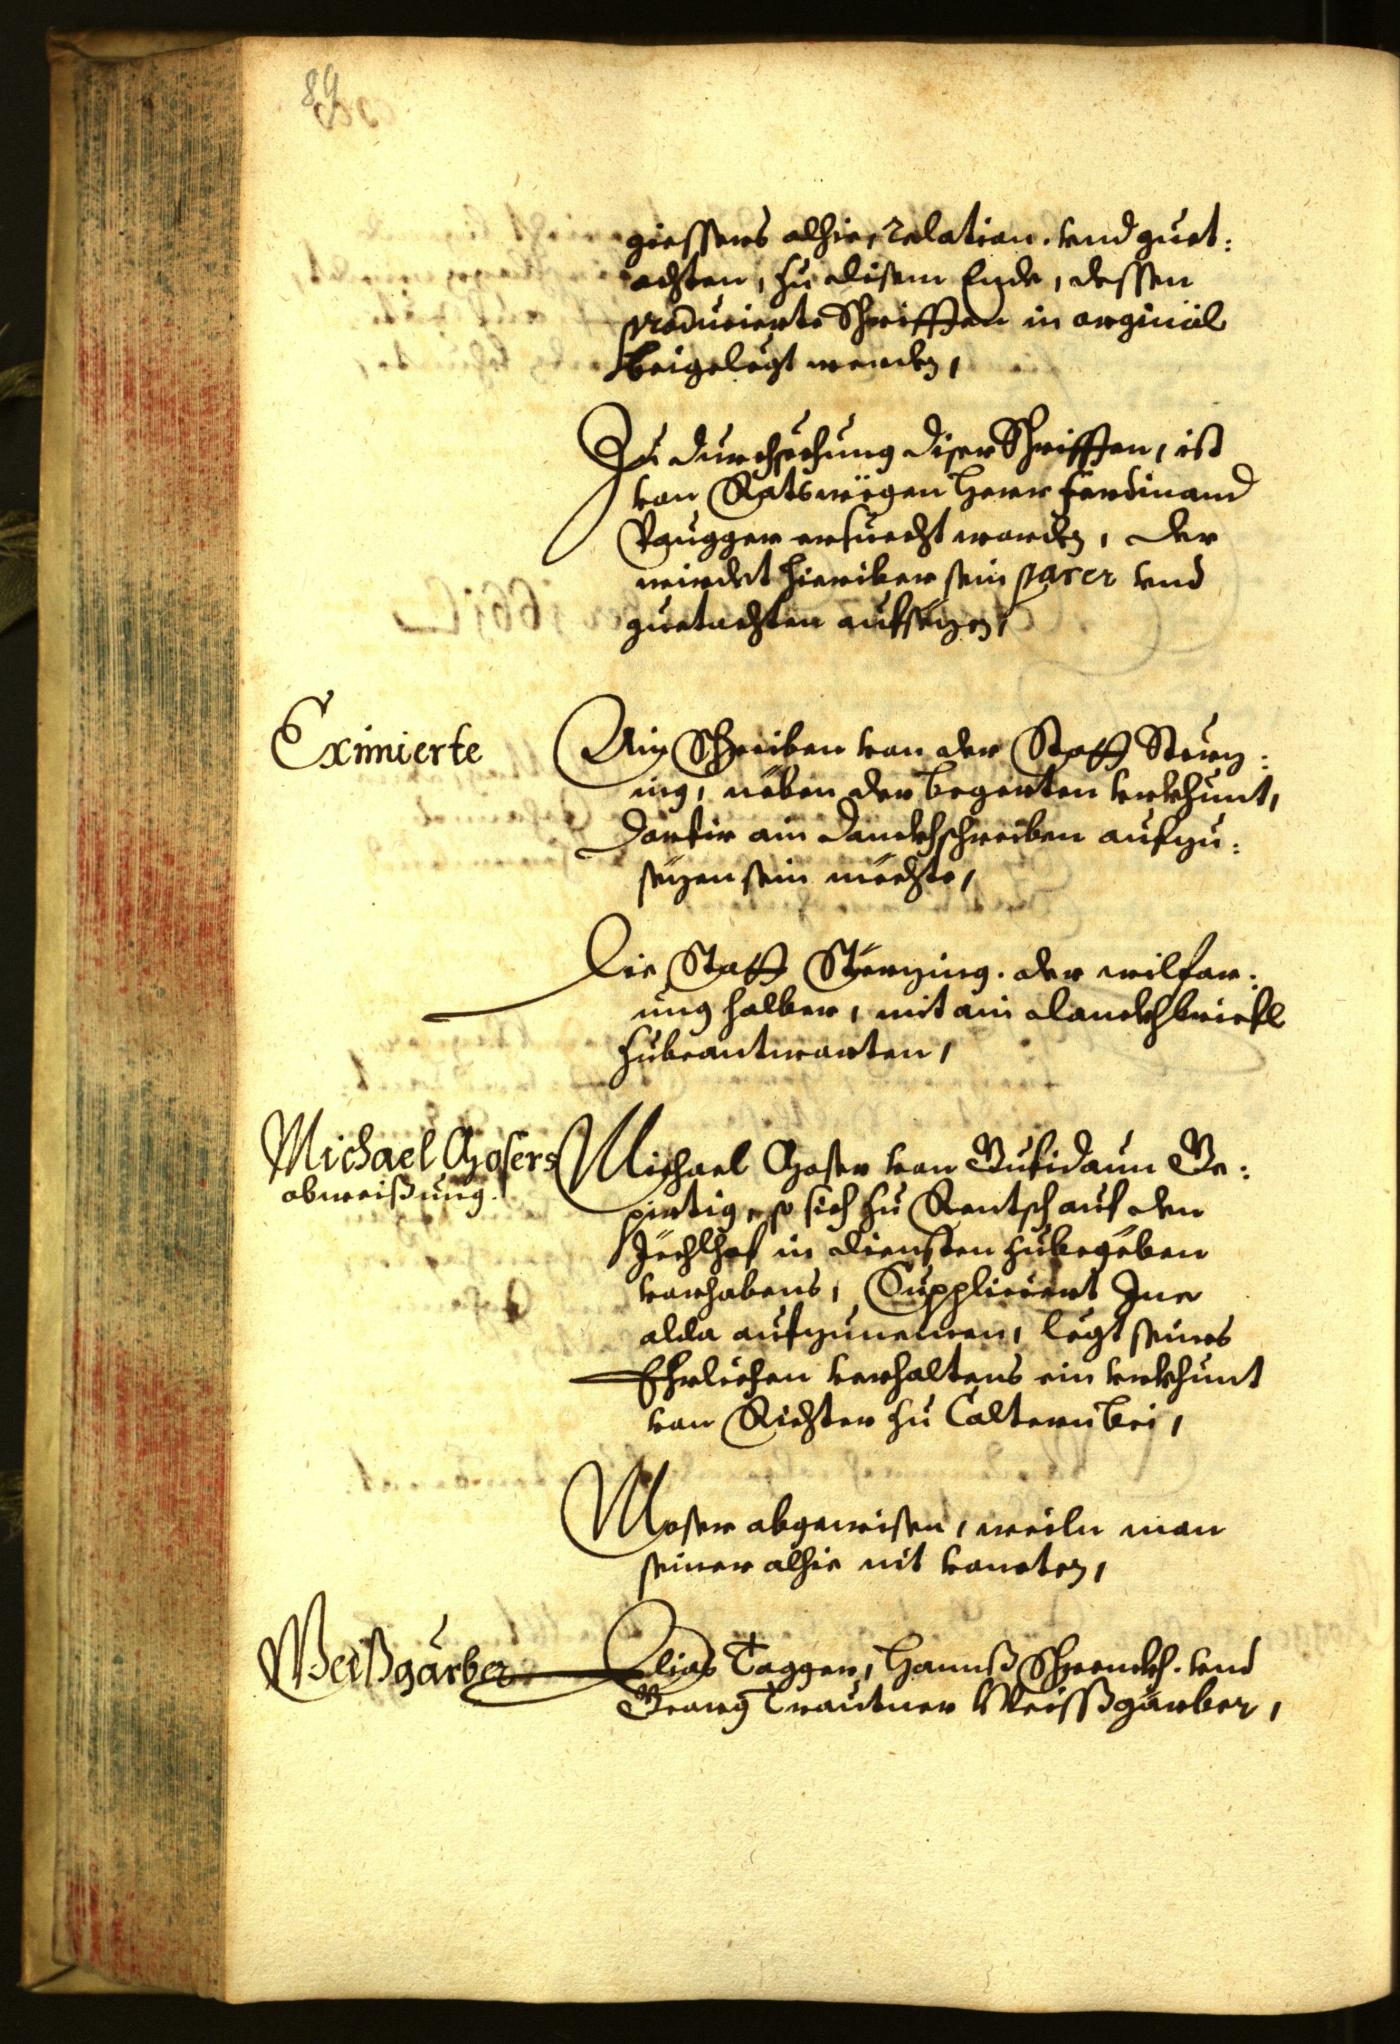 89
giessers alhie, relation. vnd guet:
achten, zu disem Ende, dessen
producierte Schrifften in orginäl
beigelegt werden,
Zu durchsechung diser Schrifften, ist
von Ratswëgen Herr Ferdinand
Paugger ersuecht worden, Der
wirdet hieriber sein parer vnd
guetachten aufsezen,
Eximierte
Ain Schreiben von der Statt Sterz:
ing, nëben der begerten vrkhunt,
darfir ain danckhschreiben aufzu:
sezen sein mechte,
Die Statt Sterzing. der wilfar:
ung halber, mit ain danckhbriefl
zubeantworten,
Michael Mosers
abweißung.
Michael Moser von Gufidaun Ge:
pirtig, so sich zu Rentsch auf den
Jechlhof in diensten zubegëben
vorhabens, Supplicirt Ine
alda aufzunemen, legt seines
Ehrlichen verhaltens ein vrkhunt
von Richter zu Caltern bei,
Moser abgewisen, weiln man
seiner alhie nit vonneten,
Weißgärber
Elias Tagger, Hannß Schrenckh. vnd
Georg Trautner Weissgärber,